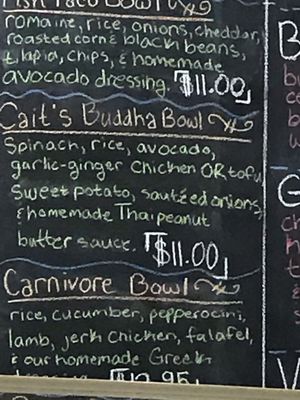 Fish Taco Bowl
romaine, rice, onions, cheddar,
roasted corn & black beans,
tilapia, chips, & homemade
avocado dressing. $11.00
Cait's Buddha Bowl
Spinach, rice, avocado,
garlic-ginger chicken OR tofu,
sweet potato, sautéed onions,
& homemade Thai peanut
butter sauce. $11.00
Carnivore Bowl
rice, cucumber, pepperocini,
lamb, jerk chicken, falafel,
& our homemade Greek